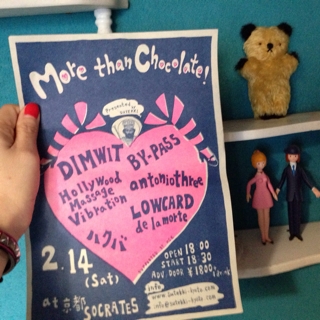 More than Chocolate!
Presented by
DIMWIT
BY-PASS
Hollywood
Massage
Vibration
antoniothree
LOWCARD
de la morte
ハクバ
2.14
(Sat)
at 京都
SOCRATES
OPEN 18:00
START 18:30
ADV. DOOR ¥1800
info